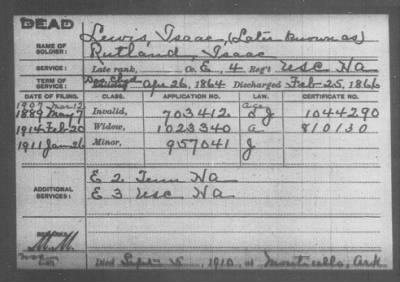 DEAD
NAME OF SOLDIER: Lewis, Isaac (Later known as)
Rutland, Isaac
SERVICE: Late rank, Co. E, 4 Reg't USC HA
TERM OF SERVICE: Enlisted Apr 26, 1864 Discharged Feb 25, 1866
DATE OF FILING. CLASS. APPLICATION NO. LAW. CERTIFICATE NO.
1907 Mar 12
1889 Mar 7 Invalid, 703412 age 2 J 1044290
1914 Feb 20 Widow, 1023340 a 810130
1911 Jan 26 Minor, 957041 J
ADDITIONAL SERVICES: E 2 Tenn HA
E 3 USC HA
REMARKS:
M.M.
Died Sept 5, 1910, at Monticello, Ark